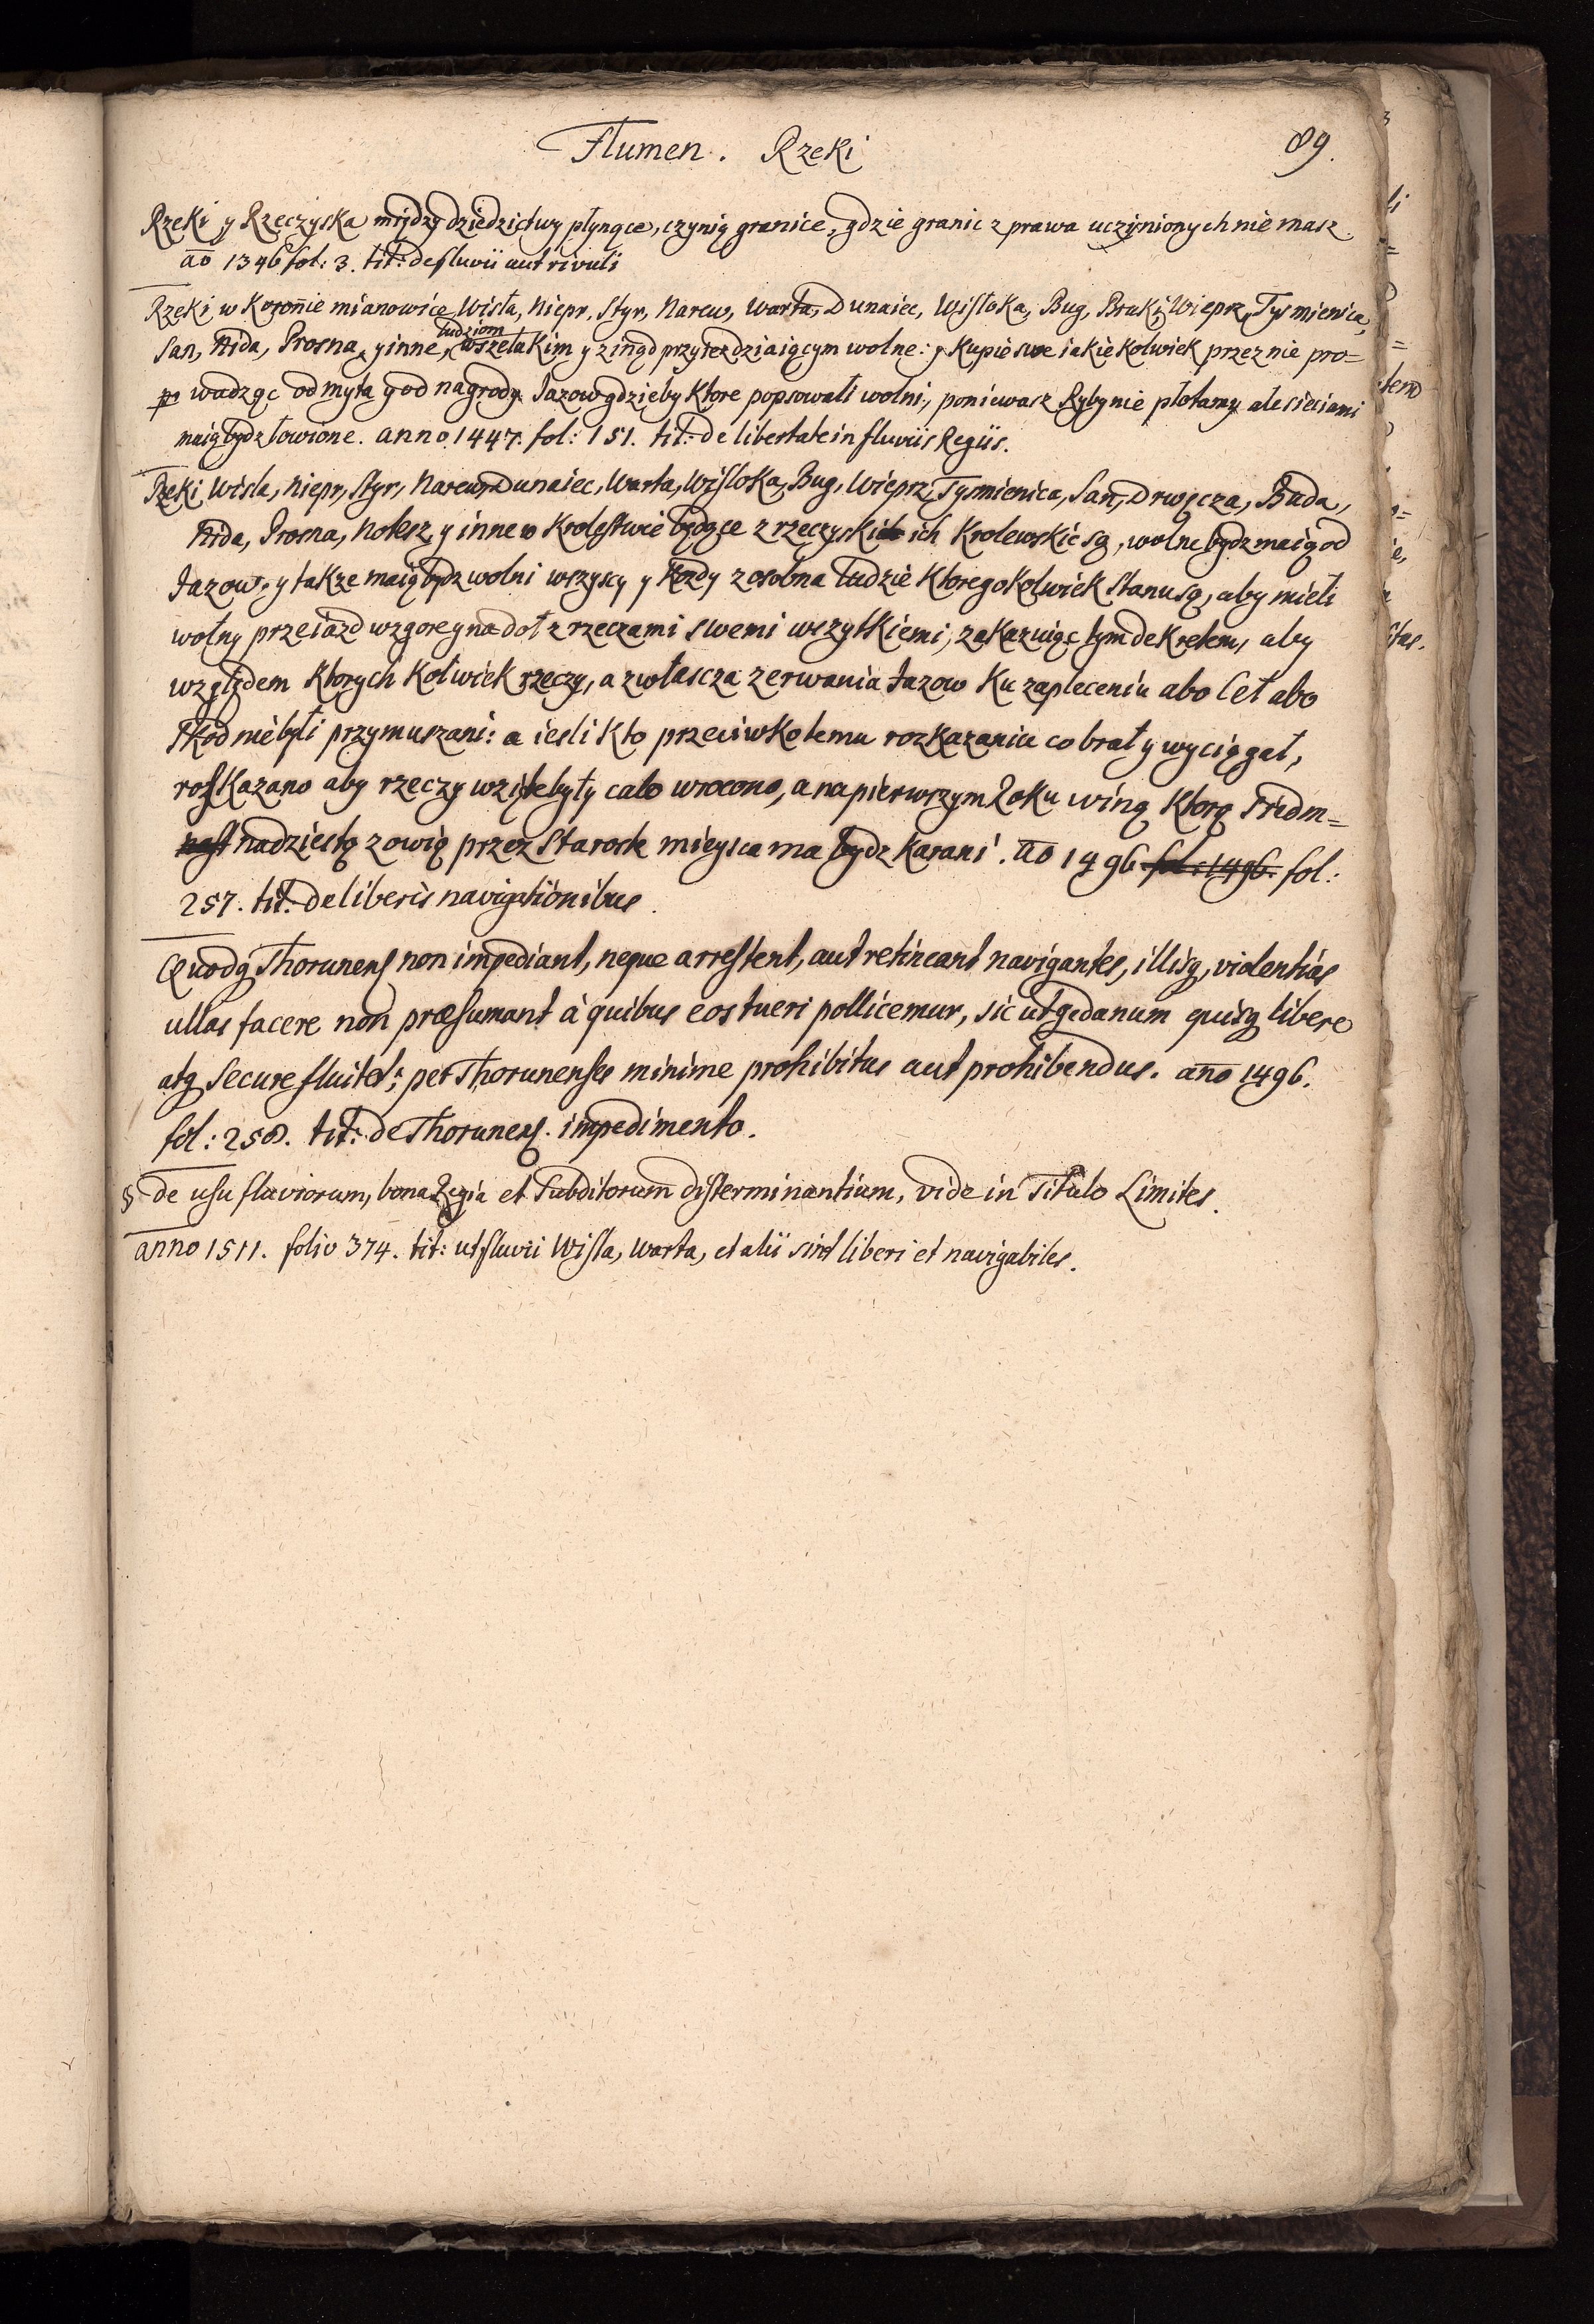 Flumen. Rzeki
89.
Rzeki y Rzeczyska między dziedzictwy płynące, czynią granice, gdzie granic z prawa uczynionych nie masz.
ao 1346 fol: 3. tit: de fluvii aut rivuli
Rzeki w Koronie mianowice Wisła, Niepr, Styr, Narew, Warta, Dunaiec, Wisłoka, Bug, Bruk, Wieprz, Tysmienica,
San, Nida, Prosna, y inne, ludziom wszelakim y zinąd przyiezdziaiącym wolne: y Kupie swe iakie kolwiek przez nie pro=
wadząc od myta y od nagrody Jazow gdzieby ktore popsowali wolni, poniewasz Ryby nie płotamy ale sieciami
maią bydz łowione. anno 1447. fol: 151. tit: de libertate in fluviis Regiis.
Rzeki Wisla, Niepr, Styr, Narew, Dunaiec, Warta, Wisloka, Bug, Wieprz, Tysmienica, San, Drwęcza, Buda,
Nida, Prosna, Notesz, y inne w Krolestwie będące z rzeczyski ich Krolewskie są, wolne bydz maią od
Jazow. y takze maią bydz wolni wszyscy y kozdy z osobna ludzie ktoregokolwiek Stanu są, aby mieli
wolny przeiazd wzgore y na doł z rzeczami swemi wszytkiemi, zakazuiąc tym dekretem, aby
względem ktorych kolwiek rzeczy, a zwłascza zerwania Jazow ku zapłeceniu abo Ceł abo
szkod nie byli przymuszani: a iesli kto przeciwko temu rozkazaniu co brał y wyciągał,
roskazano aby rzeczy wzięte były cało wrocono, a na pierwszym Roku winą ktorą Siedm=
nadziestą zowią przez Staroste mieysca ma bydz karani. ao 1496 fol: 1496. fol:
257. tit: de liberis navigationibus.
Quodq Thorunens non impediant, neque arrestent, aut retineant navigantes, illisq, violentias
ullas facere non præsumant à quibus eos tueri pollicemur, sic ut gedanum quisq libere
atq Secure fluitet; per Thorunenses minime prohibitus aut prohibendus. ano 1496.
fol: 258. tit: de Thorunens. impedimento.
§ de usu fluviorum, bona Regia et Subditorum disterminantium, vide in Titulo Limites.
anno 1511. folio 374. tit: ut fluvii Wisla, Warta, et alii sint liberi et navigabiles.